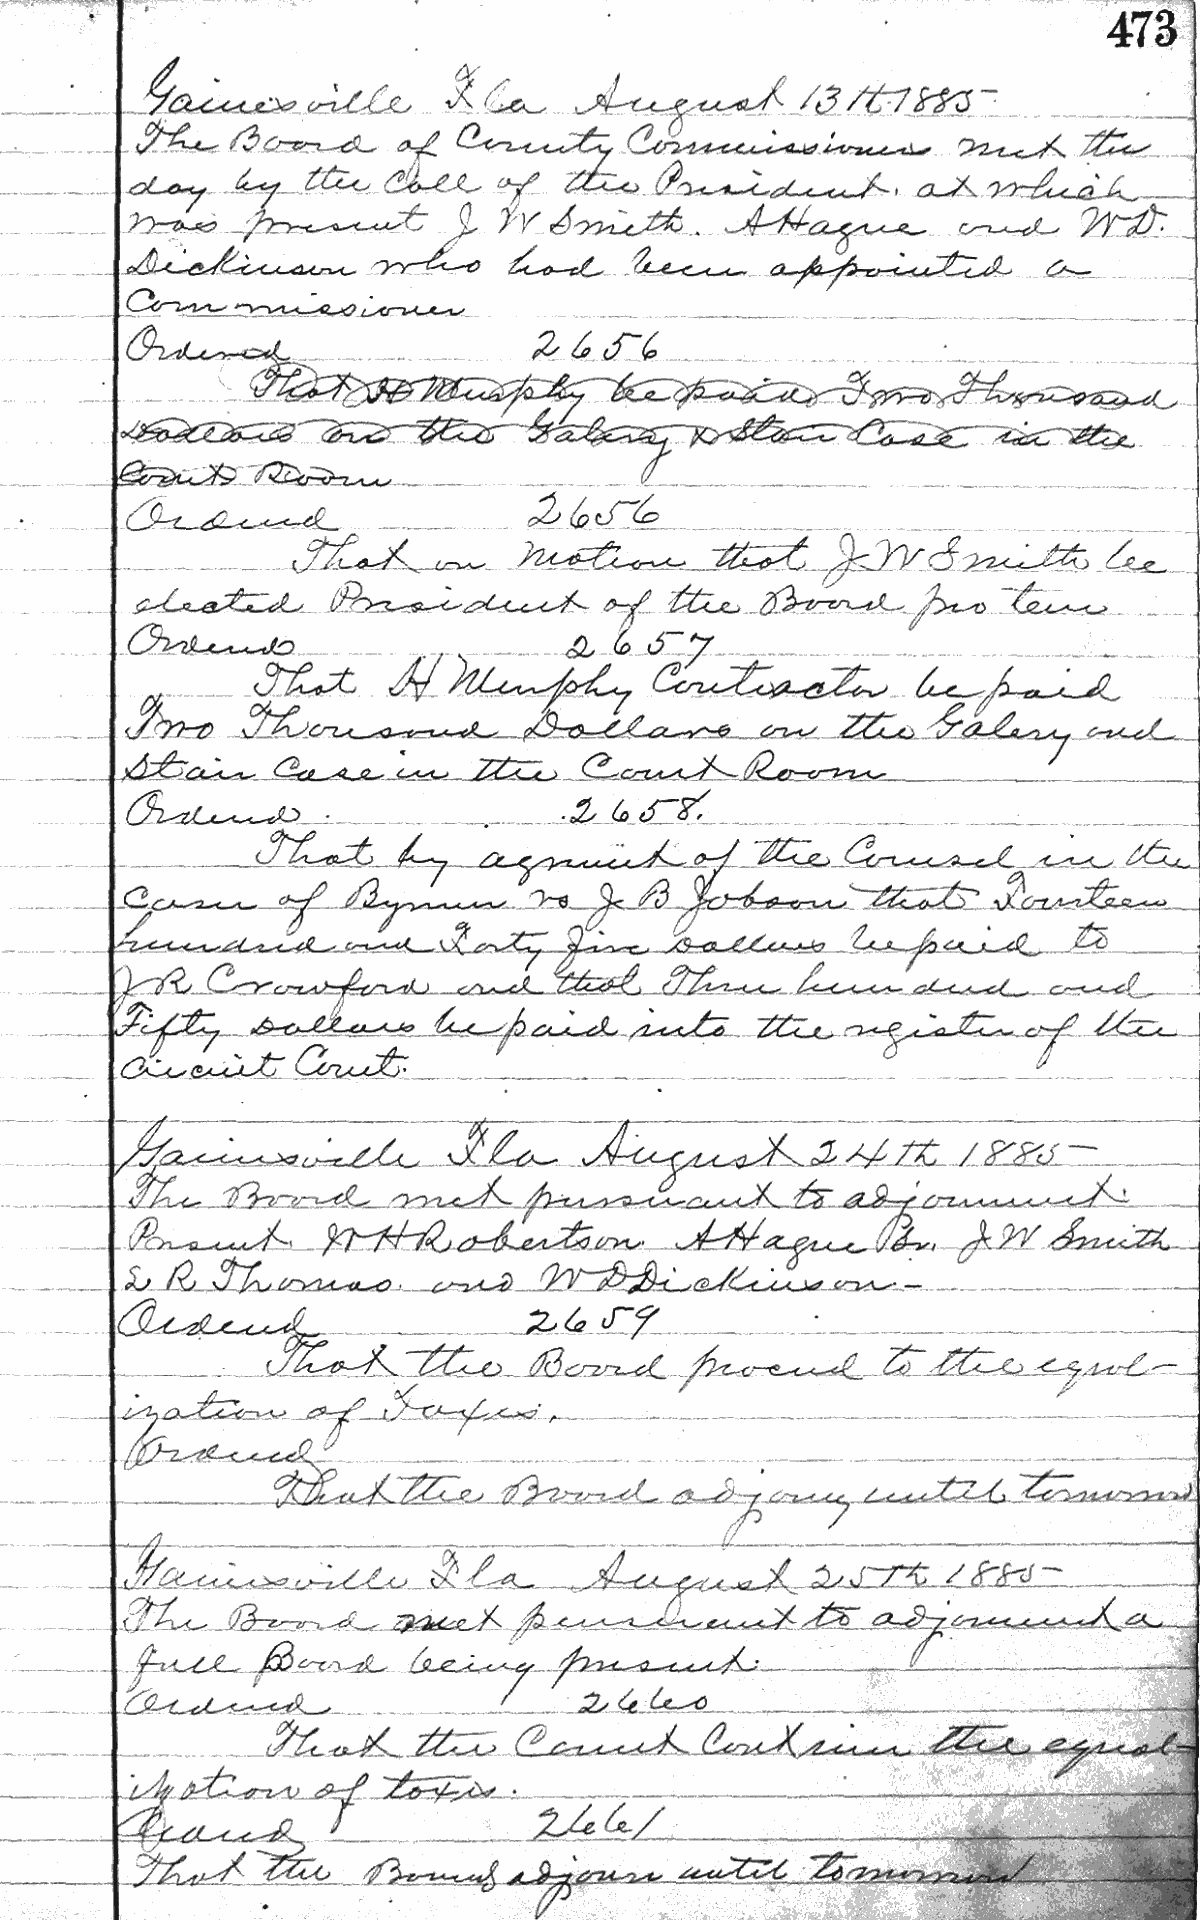 473
Gainesville Fla August 13th 1885
The Board of County Commissioners met this
day by the Call of the President. at which
was present J W Smith. A Hague and W D.
Dickinson who had been appointed a
Commissioner
Ordered 2656
That H Murphy be paid Two Thousand
Dollars on the Galery & Stair Case in the
Court Room
Ordered 2656
That on motion that J W Smith be
elected President of the Board pro tem
Ordered 2657
That H Murphy Contractor be paid
Two Thousand Dollars on the Galery and
Stair Case in the Court Room
Ordered 2658.
That by agreement of the Counsel in the
case of Bynum vs J B Jobson that Fourteen
hundred and Forty five Dollars be paid to
J R Crawford and that Three hundred and
Fifty Dollars be paid into the register of the
circuit Court.
Gainesville Fla August 24th 1885
The Board met pursuant to adjournment.
Present. W H Robertson. A Hague Sr. J W Smith
S R Thomas. and W D Dickinson
Ordered 2659
That the Board proceed to the equal-
ization of Taxes.
Ordered
That the Board adjourn until tomorrow
Gainesville Fla August 25th 1885
The Board met pursuant to adjournment a
full Board being present.
Ordered 2660
That the Court Continue the equal-
ization of taxes.
Ordered 2661
That the Board adjourn until tomorrow